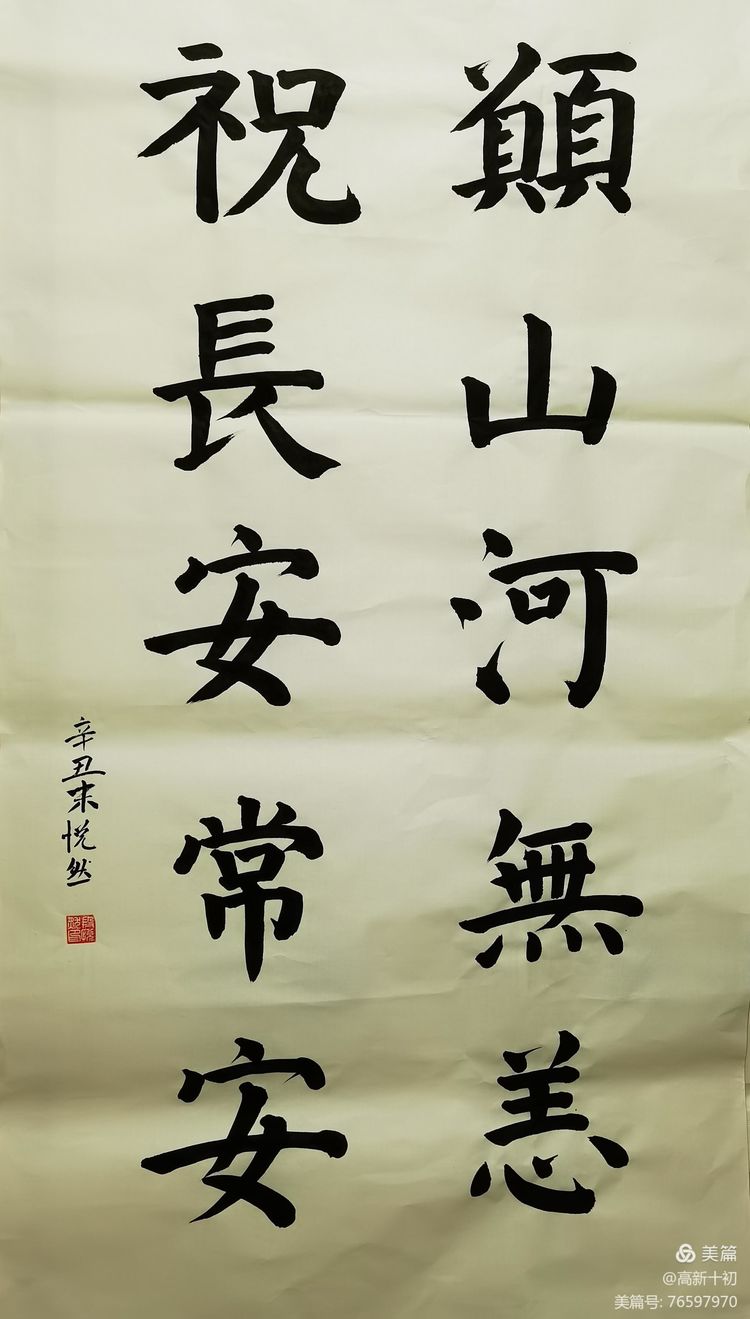 願山河無恙
祝長安常安
辛丑 悦然
美篇
@高新十初
美篇号: 76597970